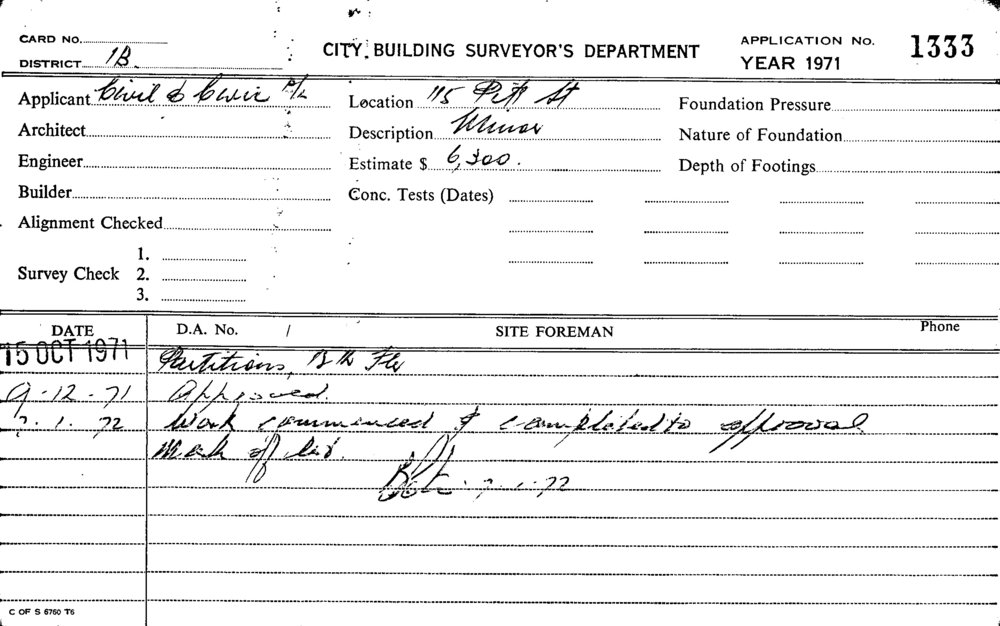 CARD No.
DISTRICT 1B.
CITY BUILDING SURVEYOR'S DEPARTMENT
APPLICATION No. 1333
YEAR 1971
Applicant Civil & Civic P/L
Location 115 Pitt St
Foundation Pressure
Architect
Description Minor
Nature of Foundation
Engineer
Estimate $ 6,300.
Depth of Footings
Builder
Conc. Tests (Dates)
Alignment Checked
Survey Check
1.
2.
3.
DATE
D.A. No. /
SITE FOREMAN
Phone
15 OCT 1971 Partitions, Flr
9-12-71 Approved.
7. 1. 72 Work commenced & completed to approval.
Mark off list.
7.1.72
C OF S 6760 T6